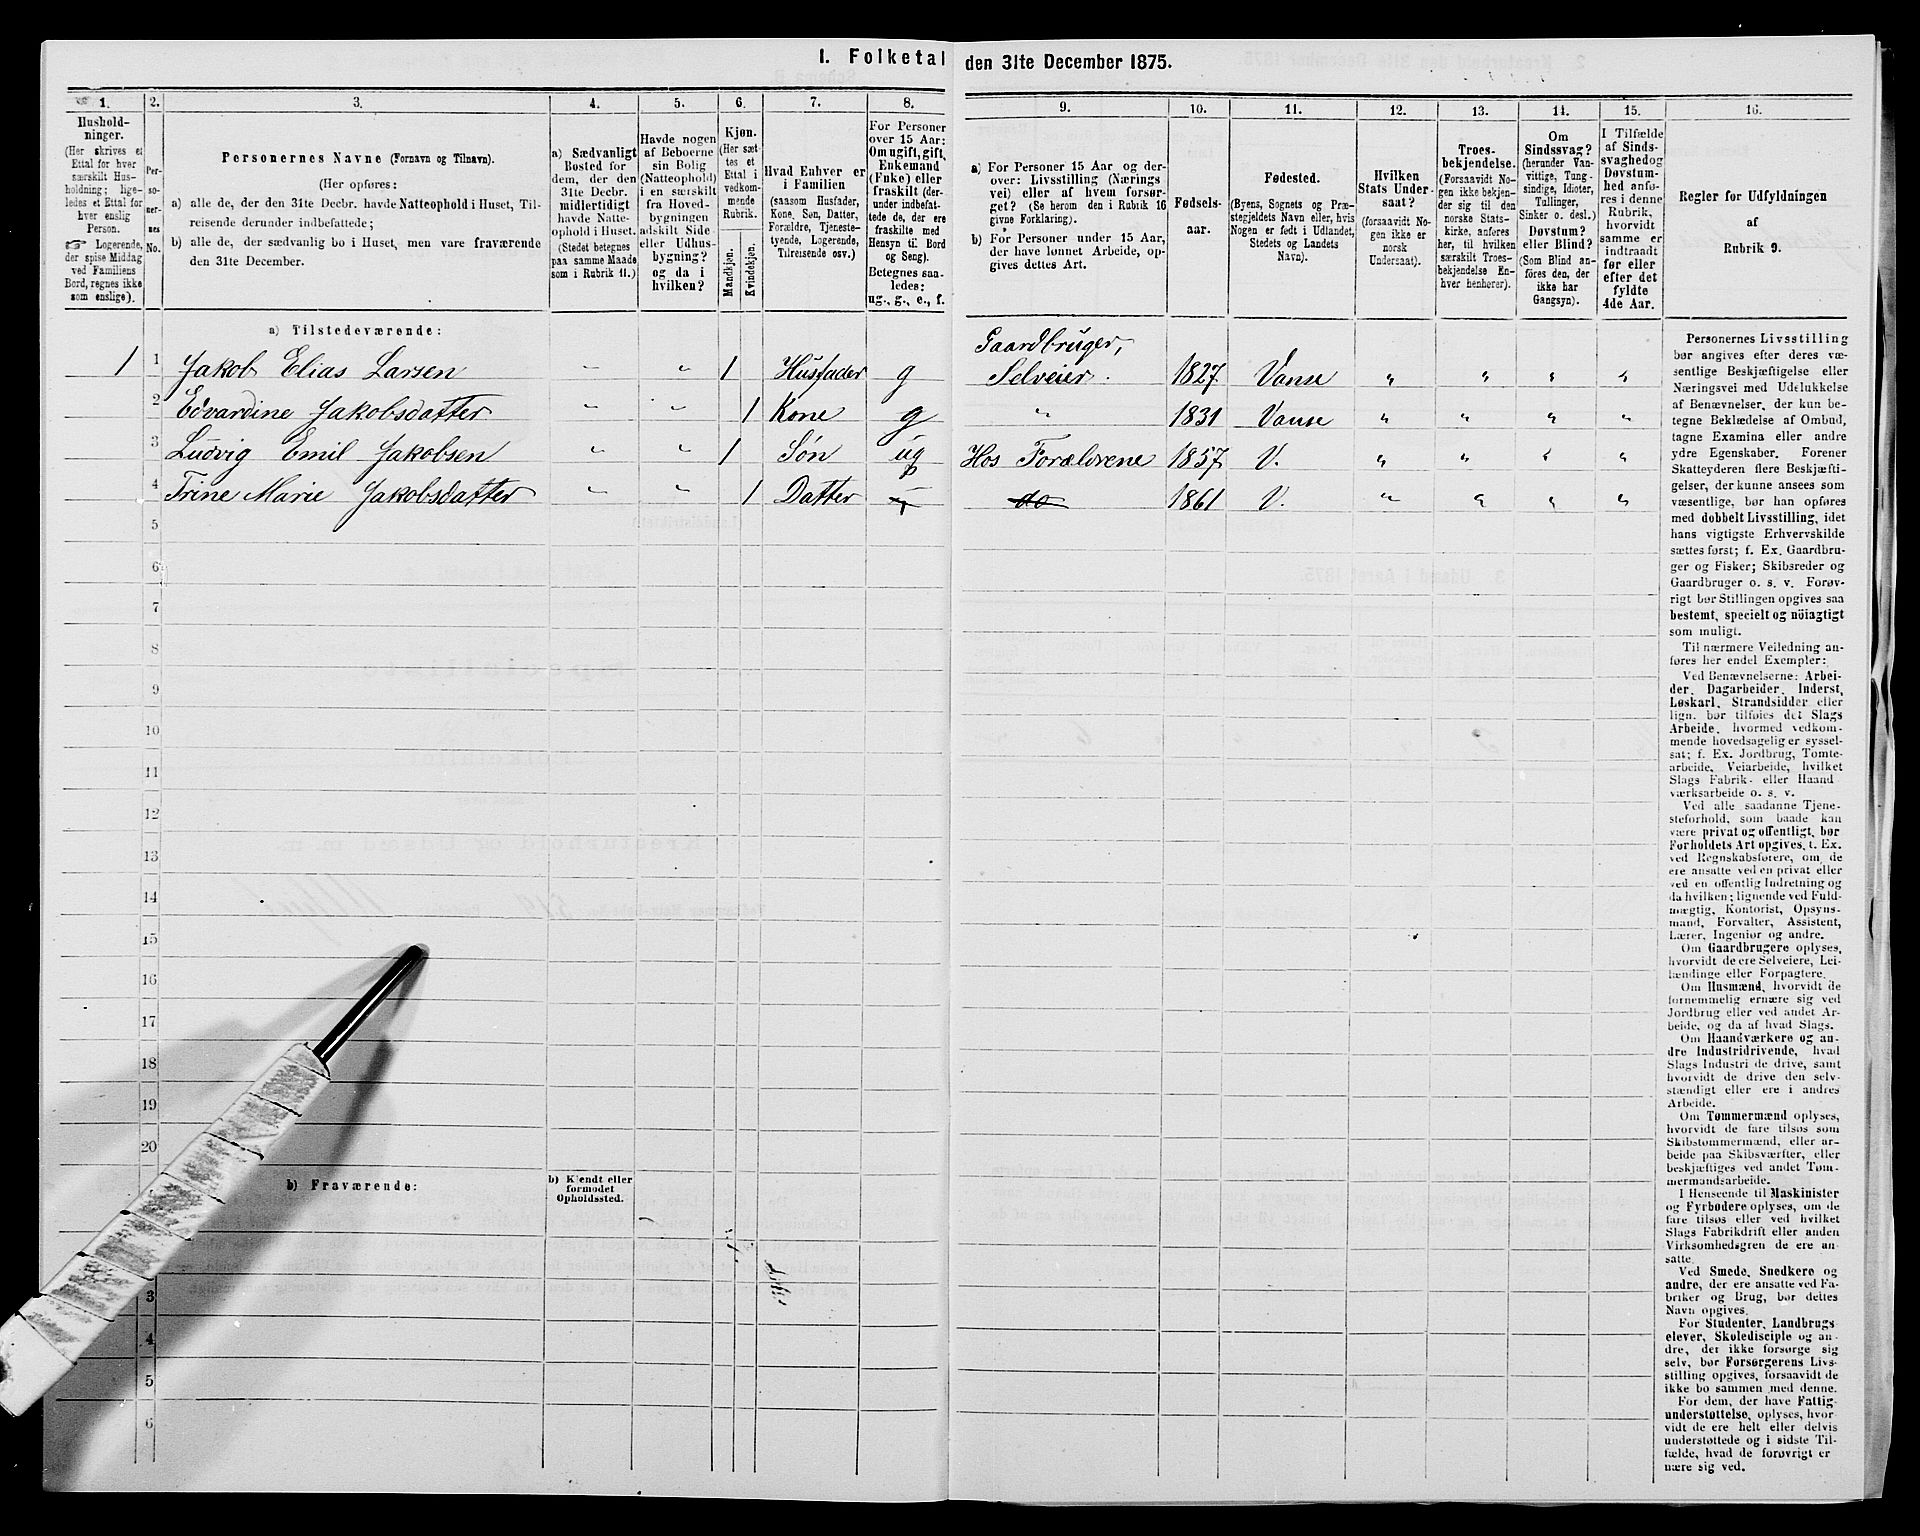 I. Folketal den 31te December 1875.
1.
Hushold-
ninger.
(Her skrives et
Ettal for hver
særskilt Hus-
holdning; lige-
ledes et Ettal for
hver enslig
Person.
☞ Logerende,
der spise Middag
ved Familiens
Bord, regnes ikke
som enslige).
2.
Per-
so-
ner-
nes
No.
3.
Personernes Navne (Fornavn og Tilnavn).
(Her opføres:
a) alle de, der den 31te Decbr. havde Natteophold i Huset, Til-
reisende derunder indbefattede;
b) alle de, der sædvanlig bo i Huset, men vare fraværende
den 31te December.
4.
a) Sædvanligt
Bosted for
dem, der den
31te Decbr.
midlertidigt
havde Natte-
ophold i Huset.
(Stedet betegnes
paa samme Maade
som i Rubrik 11.)
5.
Havde nogen
af Beboerne
sin Bolig
(Natteophold)
i en særskilt
fra Hoved-
bygningen
adskilt Side-
eller Udhus-
bygning?
og da i
hvilken?
6.
Kjøn.
(Her sæt-
tes et
Ettal i
vedkom-
mende
Rubrik.
Mandkjøn.
Kvindekjøn.
7.
Hvad Enhver er
i Familien
(saasom Husfader,
Kone, Søn, Datter,
Forældre, Tjeneste-
tyende, Logerende,
Tilreisende osv.)
8.
For Personer
over 15 Aar:
Om ugift, gift,
Enkemand
(Enke) eller
fraskilt (der-
under indbefat-
tede de, der ere
fraskilte med
Hensyn til Bord
og Seng).
Betegnes saa-
ledes:
ug., g., e., f.
9.
a) For Personer 15 Aar og der-
over: Livsstilling (Nærings
vei) eller af hvem forsør-
get? (Se herom den i Rubrik 16
givne Forklaring.)
b) For Personer under 15 Aar,
der have lønnet Arbeide, op-
gives dettes Art.
10.
Fødsels-
aar.
11.
Fødested.
(Byens, Sognets og Præ-
stegjeldets Navn eller, hvis
Nogen er født i Udlandet,
Stedets og Landets
Navn).
12.
Hvilken
Stats Under-
saat?
(forsaavidt No-
gen ikke er
norsk
Undersaat).
13.
Troes-
bekjendelse.
(Forsaavidt No-
gen ikke bekjen-
der sig til den
norske Stats-
kirke, anføres
her, til hvilken
særskilt Troes-
bekjendelse En-
hver henhører).
14.
Om
Sindssvag?
(herunder Van-
vittige, Tung-
sindige, Idioter,
Tullinger,
Sinker o. desl.)
Døvstum?
eller Blind?
(Som Blind an-
føres den, der
ikke har
Gangsyn).
15.
I Tilfælde
af Sinds-
svaghed og
Døvstum-
hed anfø-
res i denne
Rubrik,
hvorvidt
samme er
indtraadt
før eller
efter det
fyldte
4de Aar.
16.
Regler for Udfyldningen
af
Rubrik 9.
a) Tilstedeværende:
1 1 Jakob Elias Larsen " " 1 Husfader g Gaardbruger,
Selveier. 1827 Vanse " " " "
2 Edvardine Jakobsdatter " " 1 Kone g " 1831 Vanse " " " "
3 Ludvig Emil Jakobsen " " 1 Søn ug Hos Forældrene 1857 V. " " " "
4 Trine Marie Jakobsdatter " " 1 Datter do 1861 V. " " " "
5
6
7
8
9
10
11
12
13
14
15
16
17
18
19
20
b) Fraværende:
b) Kjendt eller
formodet
Opholdssted.
3
4
5
6
Personernes Livsstilling
bør angives efter deres væ-
sentlige Beskjæftigelse eller
Næringsvei med Udelukkelse
af Benævnelser, der kun be-
tegne Beklædelse af Ombud,
tagne Examina eller andre
ydre Egenskaber. Forener
Skatteyderen flere Beskjæfti-
gelser, der kunne ansees som
væsentlige, bør han opføres
med dobbelt Livsstilling, idet
hans vigtigste Erhvervskilde
sættes først; f. Ex. Gaardbru-
ger og Fisker; Skibsreder og
Gaardbruger o. s. v. Forøv-
rigt bør Stillingen opgives saa
bestemt, specielt og nöiagtigt
som muligt.
Til nærmere Veiledning an-
føres her endel Exempler:
Ved Benævnelserne: Arbei-
der, Dagarbeider, Inderst,
Løskarl, Strandsidder eller
lign. bør tilføies det Slags
Arbeide, hvormed vedkom-
mende hovedsagelig er syssel-
sat; f. Ex. Jordbrug, Tomte-
arbeide, Veiarbeide, hvilket
Slags Fabrik- eller Haand-
værksarbeide o. s. v.
Ved alle saadanne Tjene-
steforhold, som baade kan
være privat og offentligt, bør
Forholdets Art opgives, f. Ex.
ved Regnskabsførere, om de
ere ansatte ved en privat eller
ved en offentlig Indretning og
da hvilken; lignende ved Fuld-
mægtig, Kontorist, Opsyns-
mand, Forvalter, Assistent,
Lærer, Ingeniør og andre.
Om Gaardbrugere oplyses,
hvorvidt de ere Selveiere, Lei-
lændinge eller Forpagtere.
Om Husmænd, hvorvidt de
fornemmelig ernære sig ved
Jordbrug eller ved andet Ar-
beide, og da af hvad Slags.
Om Haandværkere og an-
dre Industridrivende, hvad
Slags Industri de drive, samt
hvorvidt de drive den selv-
stændigt eller ere i andres
Arbeide.
Om Tømmermænd oplyses,
hvorvidt de fare tilsøs som
Skibstømmermænd, eller ar-
beide paa Skibsværfter, eller
beskjæftiges ved andet Tøm-
mermandsarbeide.
I Henseende til Maskinister
og Fyrbødere oplyses, om de
fare tilsøs eller ved hvilket
Slags Fabrikdrift eller anden
Virksomhedsgren de ere an-
satte.
Ved Smede, Snedkere og
andre, der ere ansatte ved Fa-
briker og Brug, bør dettes
Navn opgives.
For Studenter, Landbrugs-
elever, Skoledisciple og an-
dre, der ikke forsørge sig
selv, bør Forsørgerens Livs-
stilling opgives, forsaavidt de
ikke bo sammen med denne.
For dem, der have Fattig-
understøttelse, oplyses, hvor-
vidt de ere helt eller delvis
understøttede og i sidste Til-
fælde, hvad de forøvrigt er-
nære sig ved.